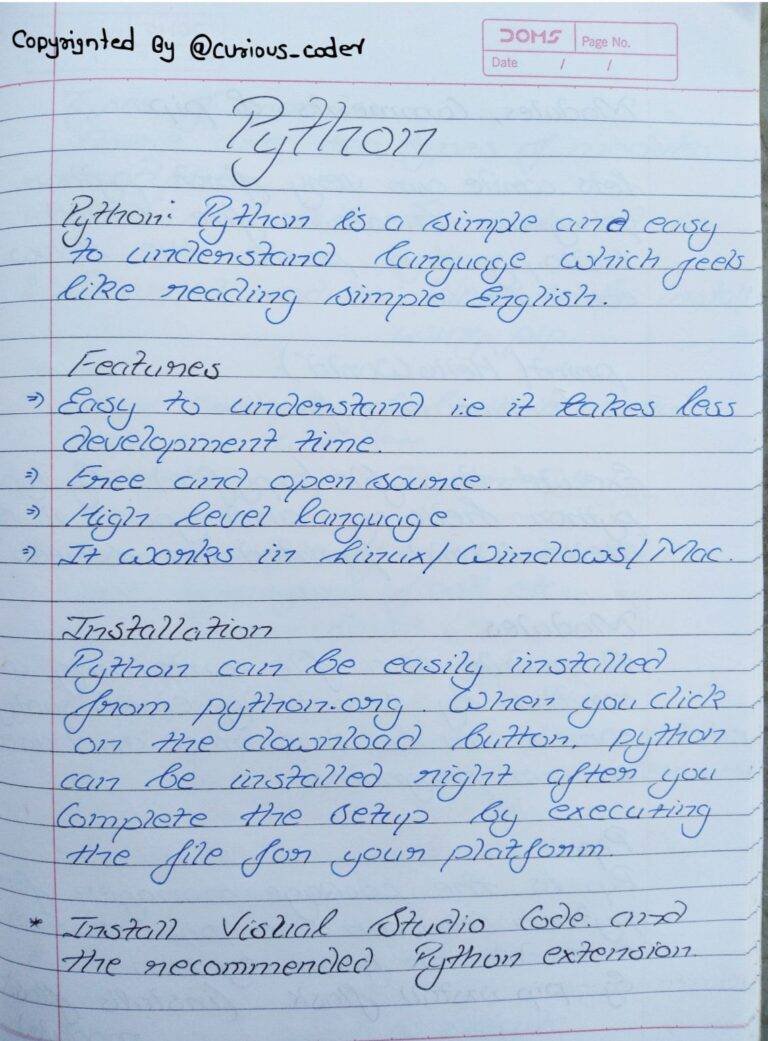 Copyrignted By @curious_coder
DOMS
Page No.
Date / /
Python
Python: Python is a simple and easy
to understand language which feels
like reading simple English.
Features
⇒ Easy to understand i.e it takes less
development time.
⇒ Free and open source.
⇒ High level language
⇒ It works in Linux/Windows/Mac.
Installation
Python can be easily installed
from python.org. When you click
on the download button, python
can be installed right after you
Complete the setup by executing
the file for your platform.
* Install Visual Studio Code. and
the recommended Python extension.